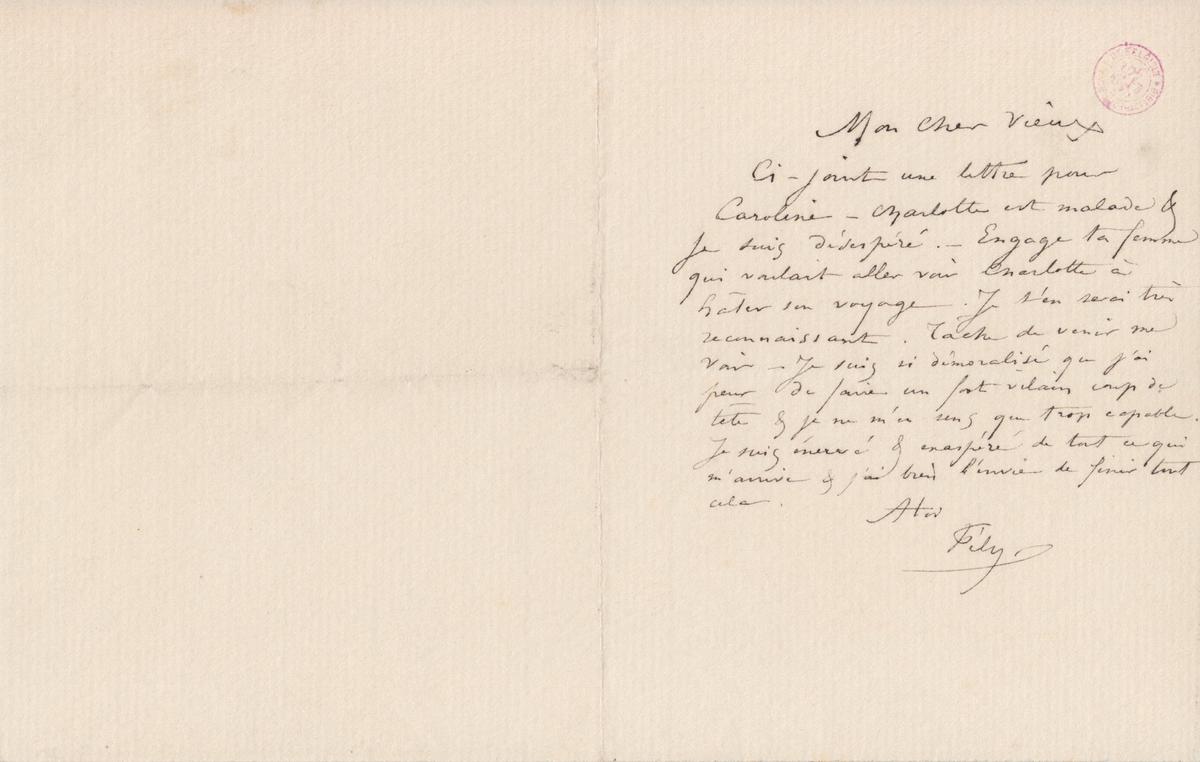 Mon cher Vieux
Ci-joint une lettre pour
Caroline – Charlotte est malade &
je suis désespéré. – Engage ta femme
qui voulait aller voir Charlotte à
hâter son voyage. Je t'en serai très
reconnaissant. Tache de venir me
voir – Je suis si démoralisé que j'ai
peur de faire un fort vilain coup de
tête & je ne m'en sens que trop capable.
Je suis énervé & exaspéré de tout ce qui
m'arrive & j'ai bien l'envie de finir tout
cela.
A toi
Fély